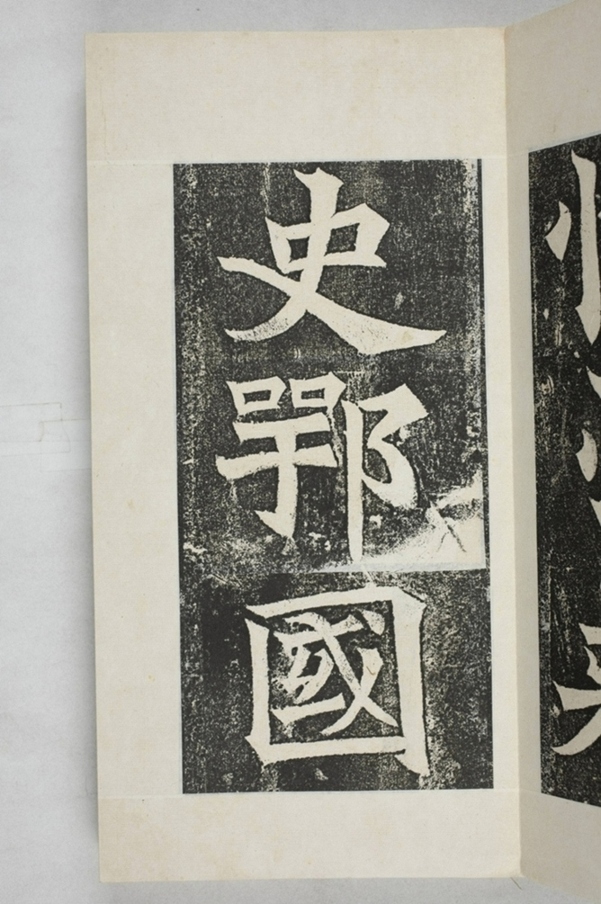 史鄂國